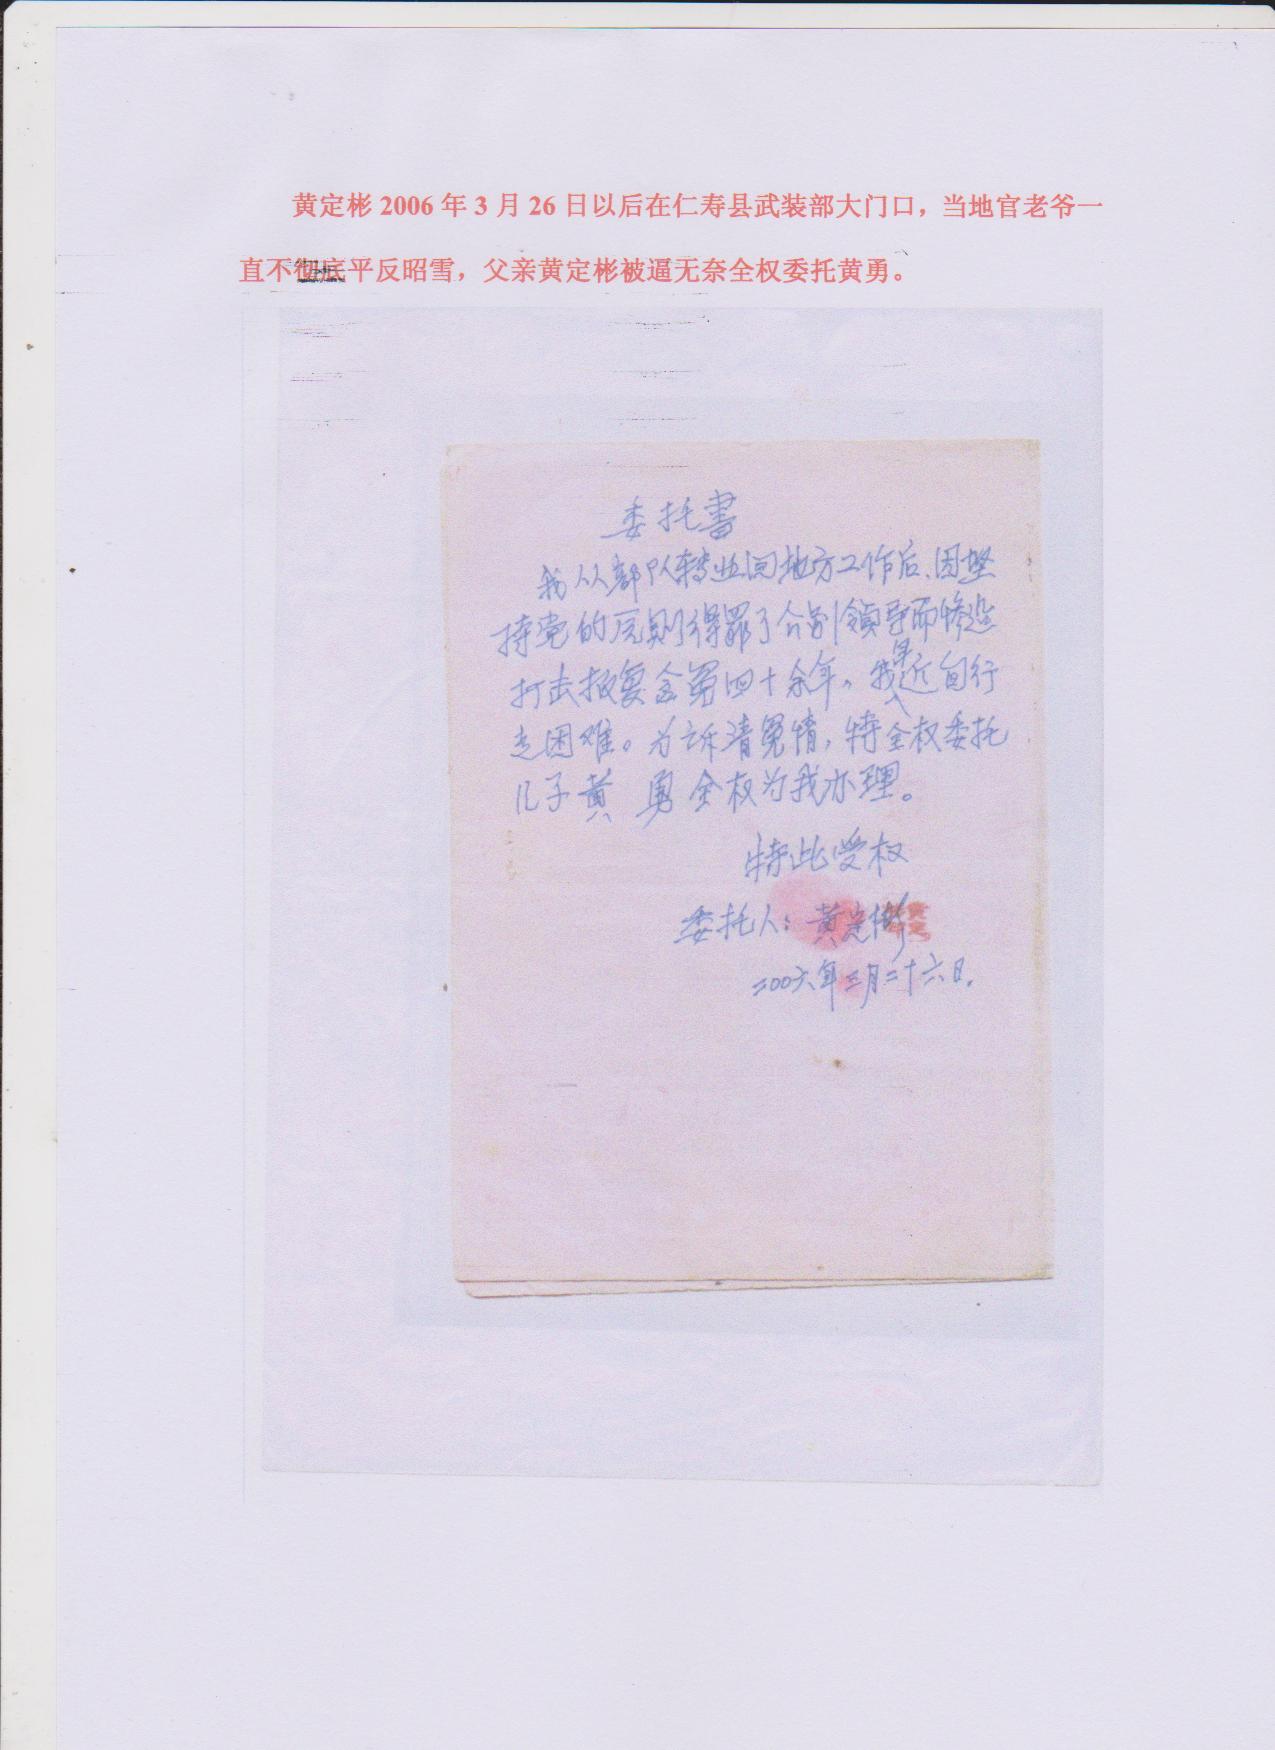 黄定彬2006年3月26日以后在仁寿县武装部大门口，当地官老爷一
直不彻底平反昭雪，父亲黄定彬被逼无奈全权委托黄勇。
委托書
我从部队转业回地方工作后、因坚
持党的原则得罪了个别领导而惨遭
打击报复含冤四十余年。我最近自行
走困难。为诉清冤情，特全权委托
儿子黄 勇全权为我办理。
特此受权
委托人：黄定彬
二00六年三月二十六日。